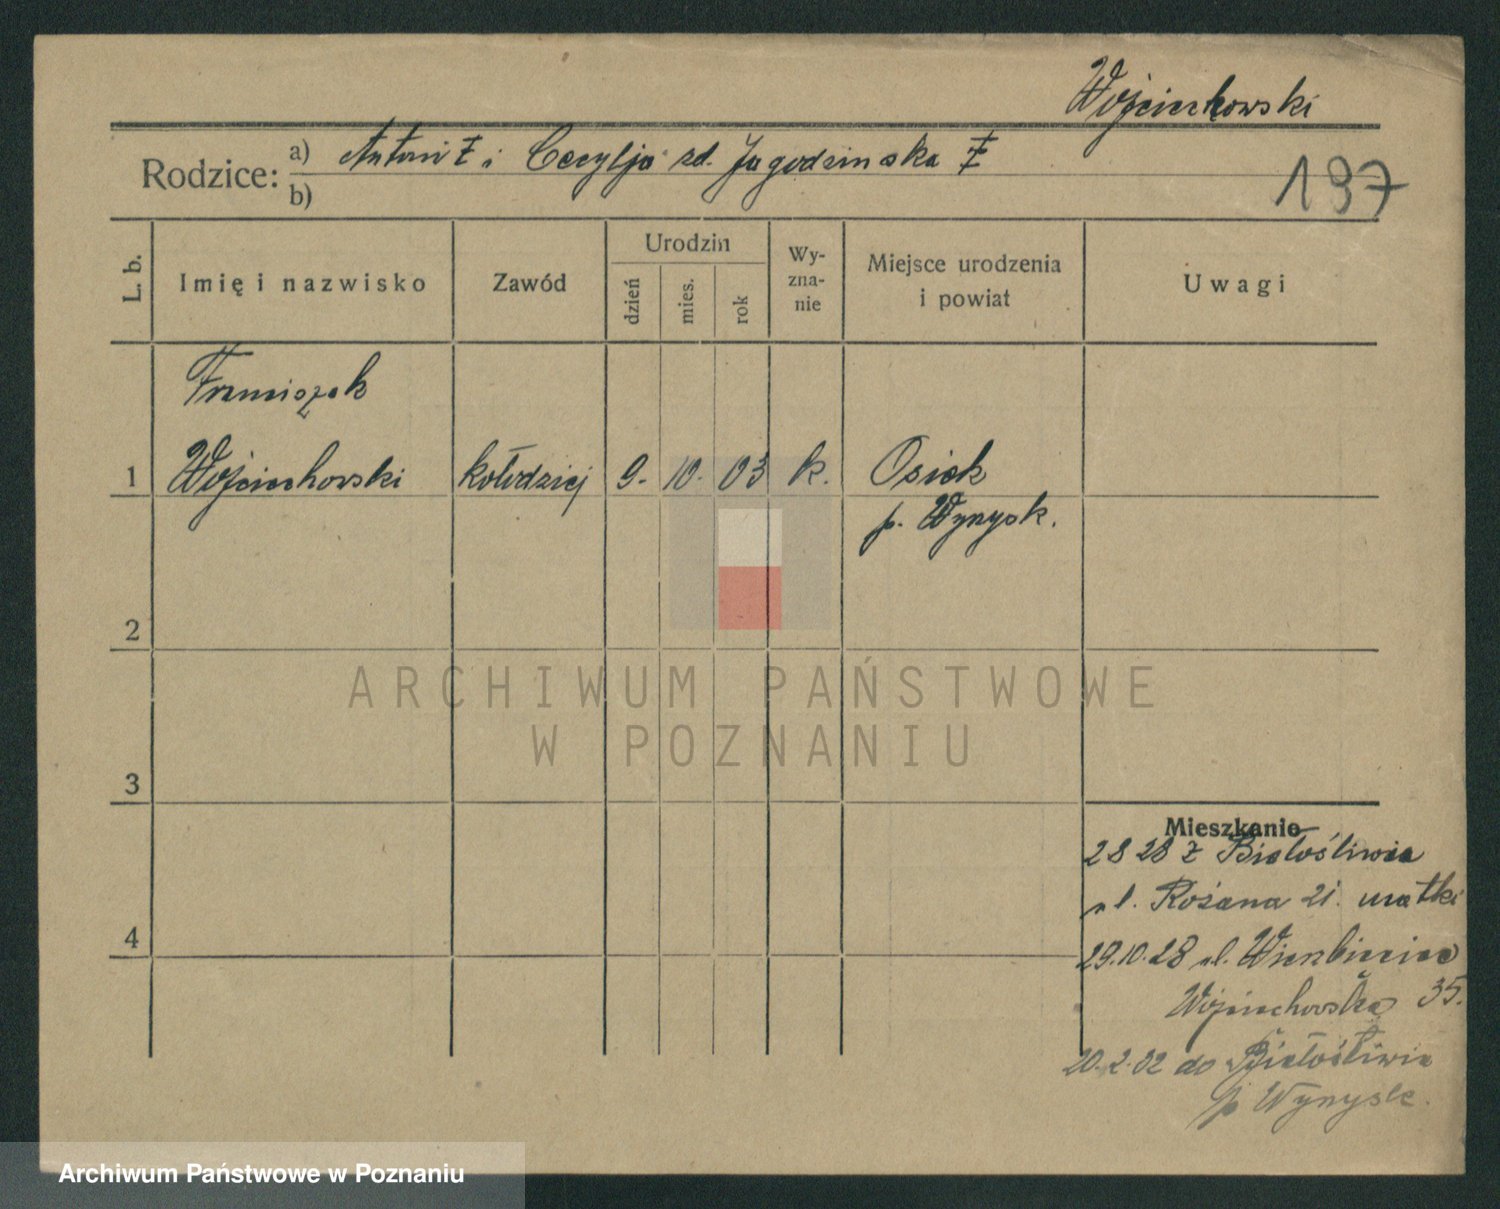 Wojciechowski
Rodzice: a) Antoni ‡ i Cecylja zd. Jagodzinska ‡
b)
197
L. b. Imię i nazwisko Zawód Urodzin dzień mies. rok Wy-zna-nie Miejsce urodzenia i powiat Uwagi
Franciszek
1 Wojciechowski kołodziej 9. 10. 03 k. Osiek
p. Wyrysk.
2
ARCHIWUM PAŃSTWOWE
W POZNANIU
3
Mieszkanie
28 28 z Białośliwia
ul. Rożana 21. matki
29.10.28 ul. Wierzbięcice
Wojciechowska 35.
20.2.32 do Białośliwia
p Wyrysk.
4
Archiwum Państwowe w Poznaniu